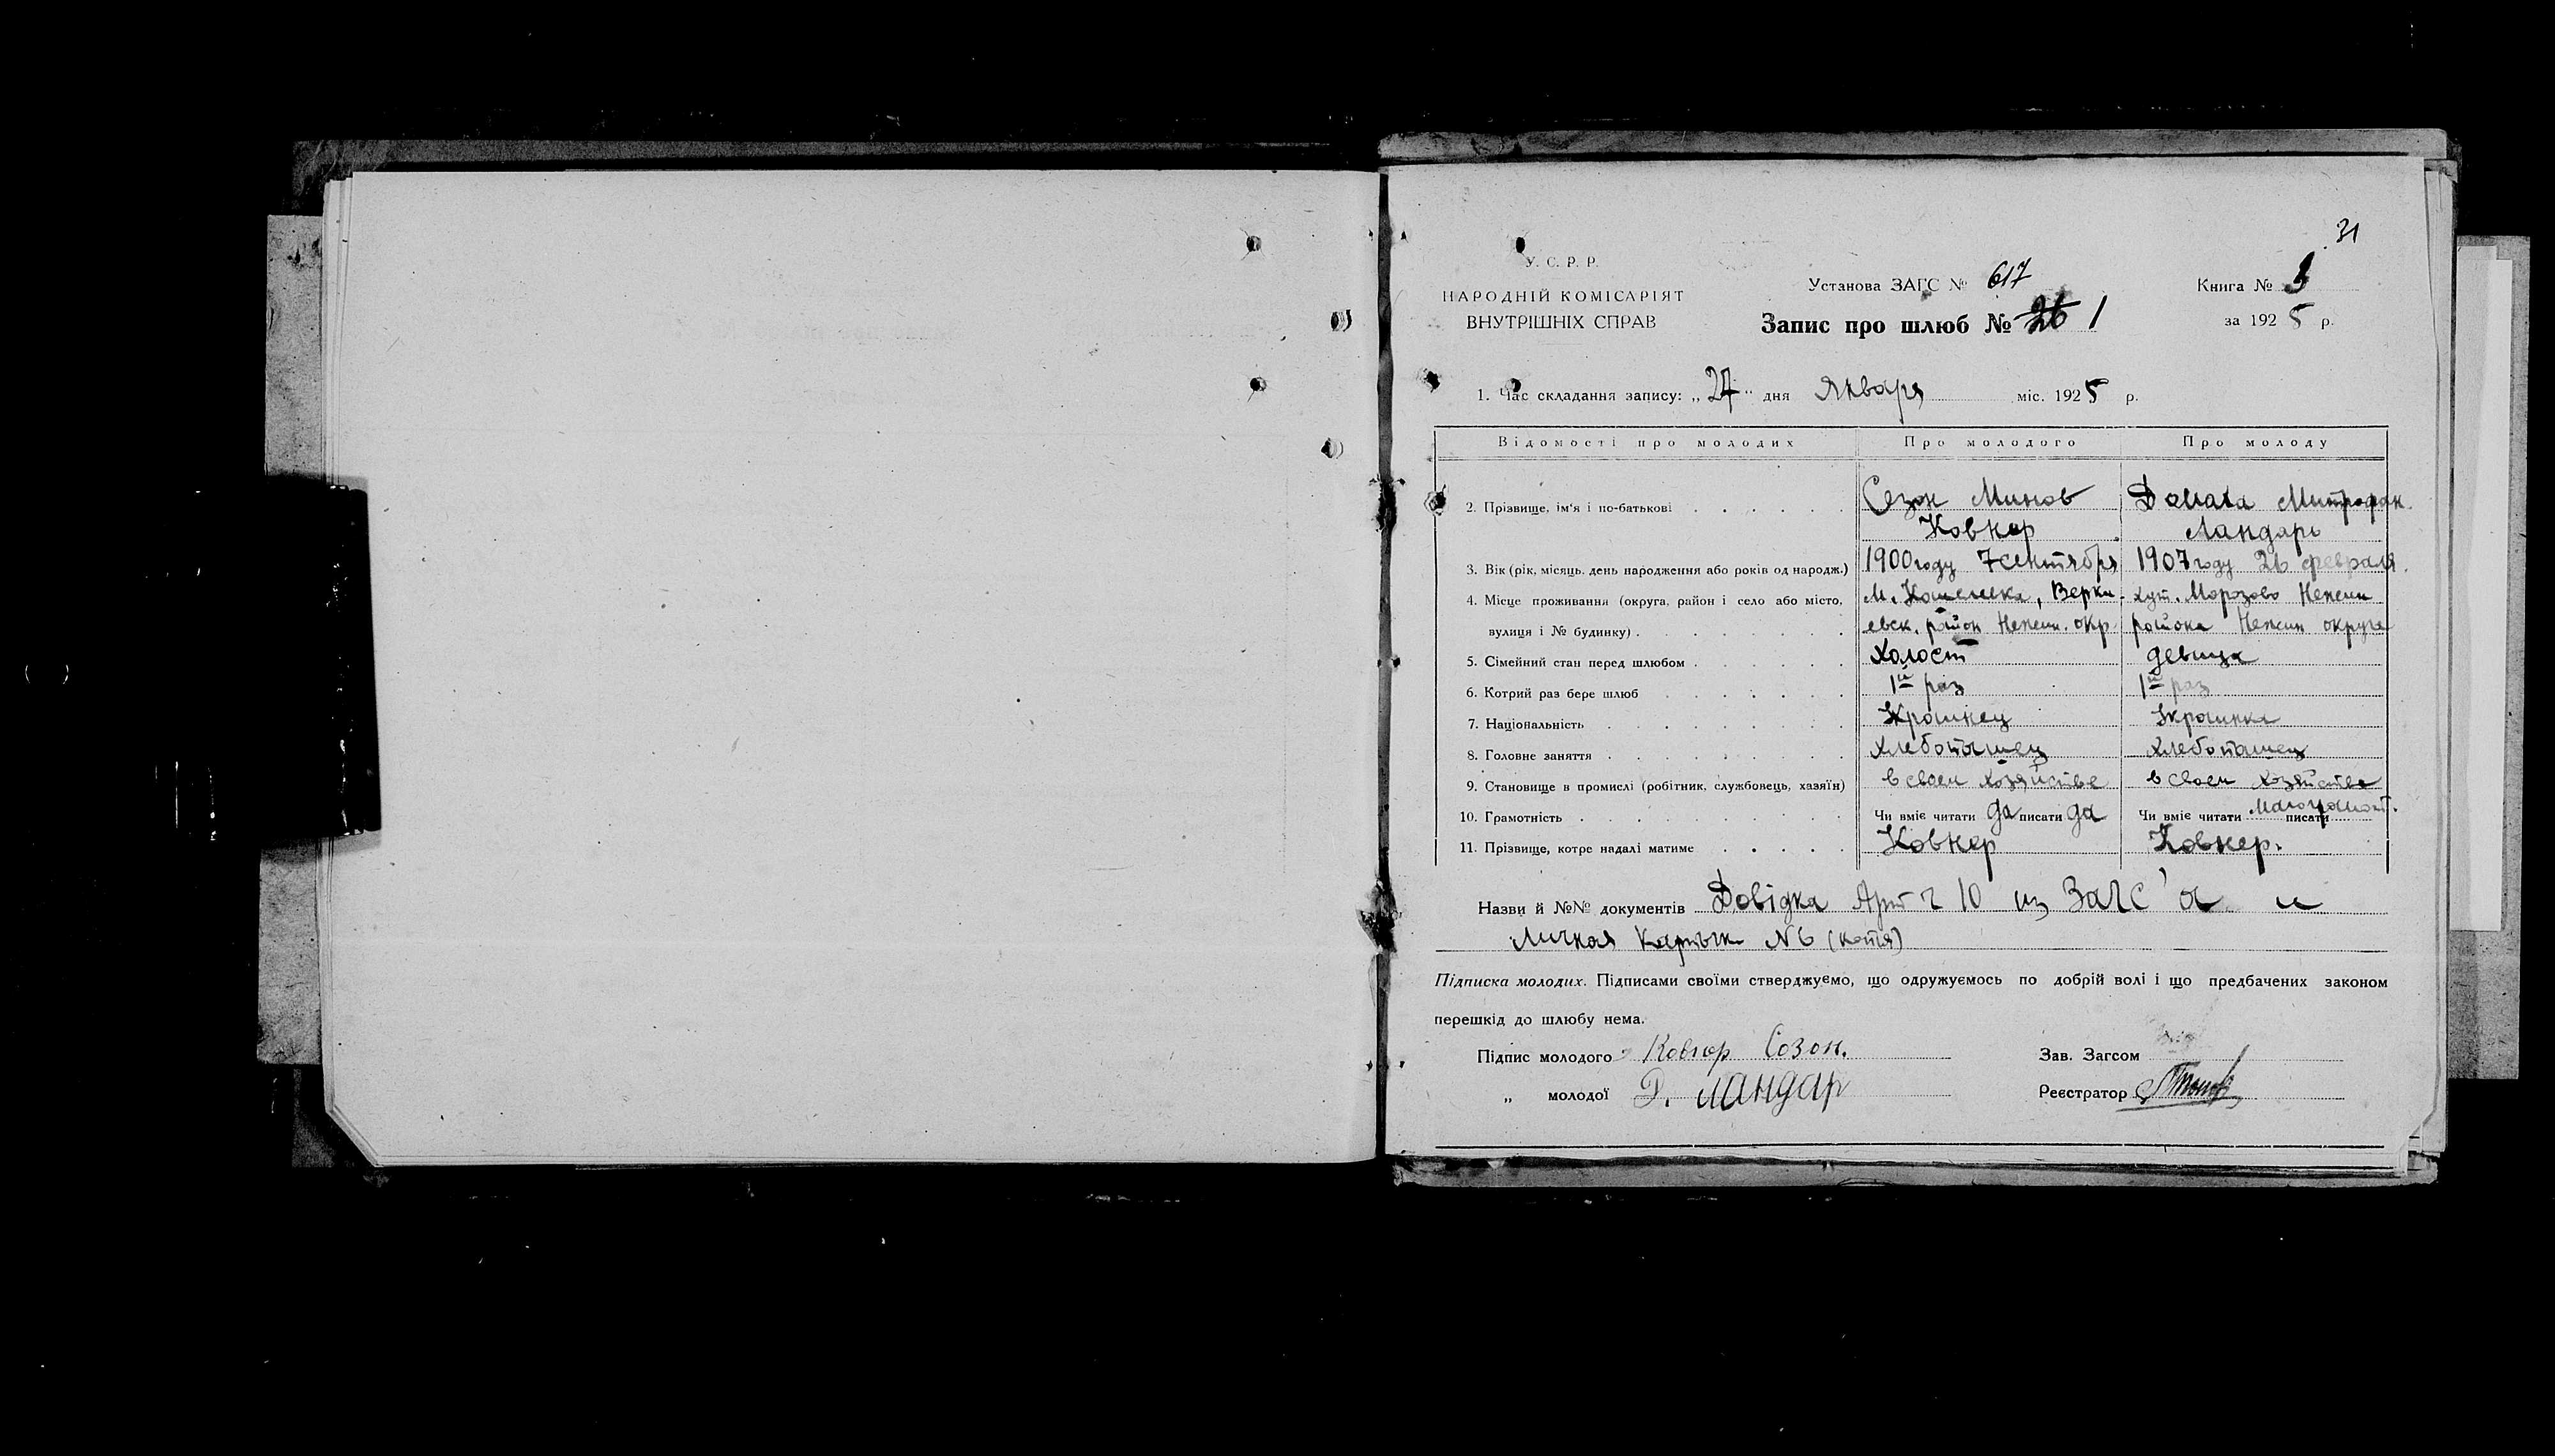 31
У. С. Р. Р.
НАРОДНІЙ КОМІСАРІЯТ
ВНУТРІШНІХ СПРАВ
Установа ЗАГС № 617
Запис про шлюб № 26 1
Книга №
за 1925 р.
1. Час складання запису: „27" дня Января міс. 1925 р.
Відомості про молодих Про молодого Про молоду
2. Прізвище, ім'я і по-батькові Сезон Минов Ковнер Домаха Митрофан. Ландарь
3. Вік (рік, місяць, день народження або років од народж.) 1900 году 7 сентября 1907 году 26 февраля.
4. Місце проживання (округа, район і село або місто, вулиця і № будинку) М. Кошелевка, Верки-евск. район Нежин. окр. хут. Морозово Нежин района Нежин округа
5. Сімейний стан перед шлюбом Холост девица
6. Котрий раз бере шлюб 1й раз 1й раз
7. Національність Украинец Украинка
8. Головне заняття Хлебопашец Хлебопашец
9. Становище в промислі (робітник, службовець, хазяїн) в своем хозяйстве в своем хозяйстве
10. Грамотність Чи вміє читати да писати да Чи вміє читати малограмот. писати
11. Прізвище, котре надалі матиме Ковнер Ковнер.
Назви й №№ документів Довідка 10 из ЗАГС'а и
Личная Карточка № 6 (копія)
Підписка молодих. Підписами своїми стверджуємо, що одружуємось по добрій волі і що предбачених законом
перешкід до шлюбу нема.
Підпис молодого Ковнер Созон.
Зав. Загсом
„ молодої Д. Ландар
Реєстратор